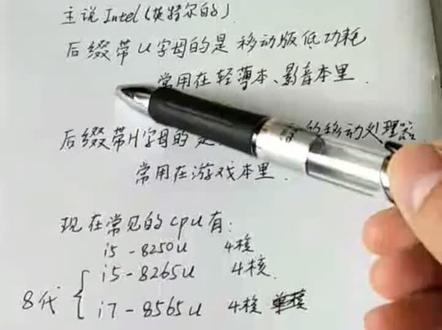 主说Intel(英特尔的)
后缀带U字母的是移动版低功耗
常用在轻薄本、影音本里.
后缀带H字母的是 的移动处理器
常用在游戏本里.
现在常见的cpu有:
i5-8250U 4核
8代 { i5-8265U 4核.
i7-8565U 4核